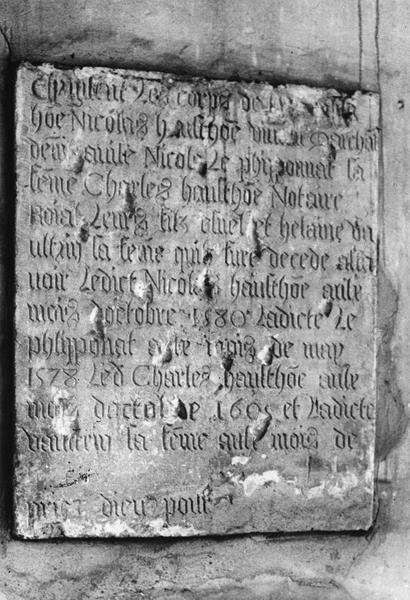 Cy gisent Les corps de
hōe Nicolas haulthōe vivāt Marchāt
dem̄ aulē Nicole Le phlyponnat sa
fēme Charles haulthōe Notaire
Roial Leurs filz aisnel et helaine vau
ultrin sa fēme quis furē decede asca
voir Ledict Nicolas haulthōe au le
mois doctobre 1580 Ladicte Le
phlyponat au le mois de may
1578 Led Charles haulthōe au le
mois doctobre 1605 et Ladicte
vautrin sa fēme au le mois de
priez dieu pour